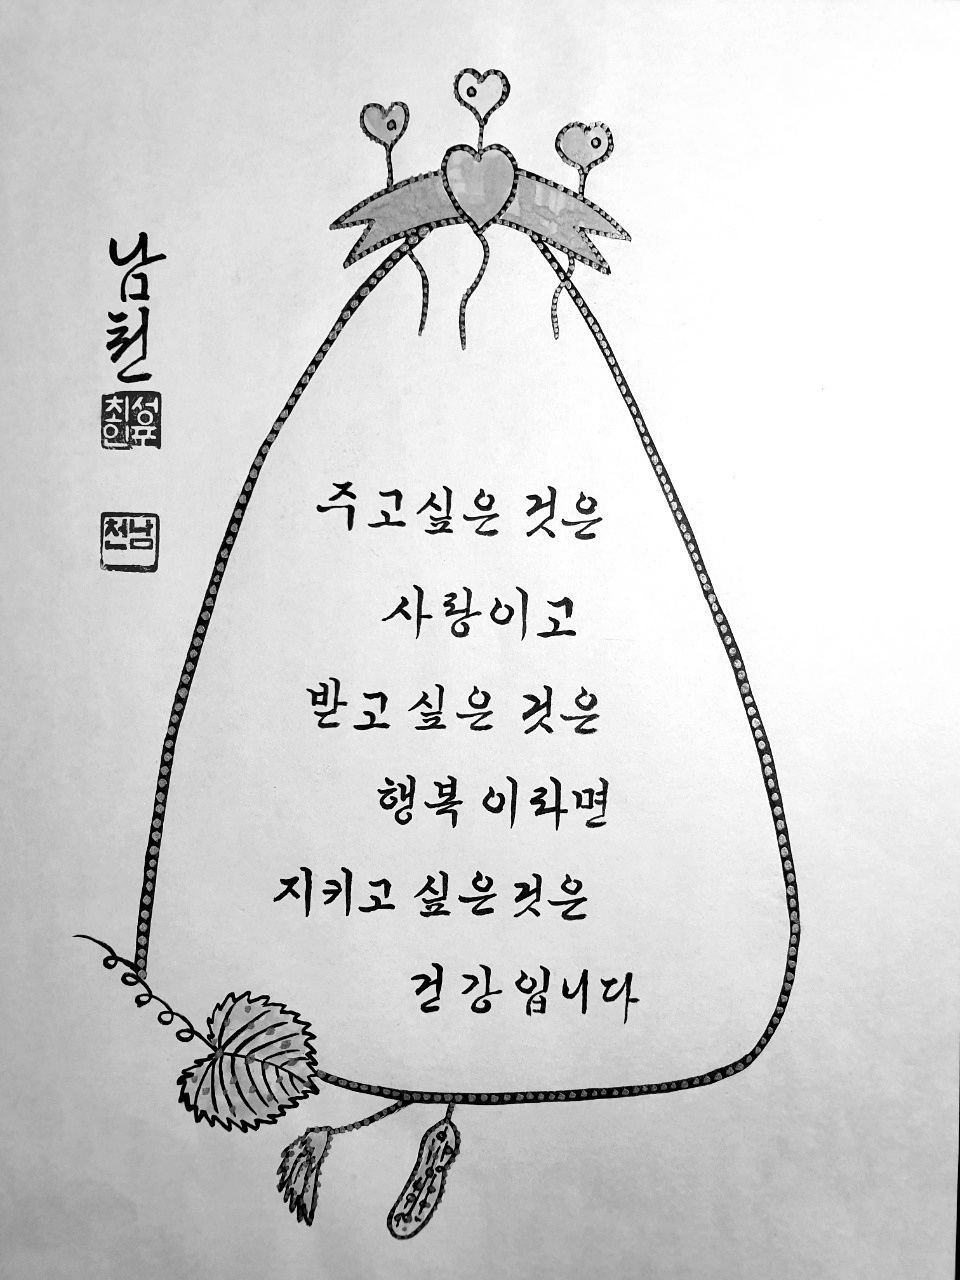 주고싶은 것은
사랑이고
받고싶은 것은
행복이라면
지키고 싶은것은
건강입니다
남천
최성
인표
남천